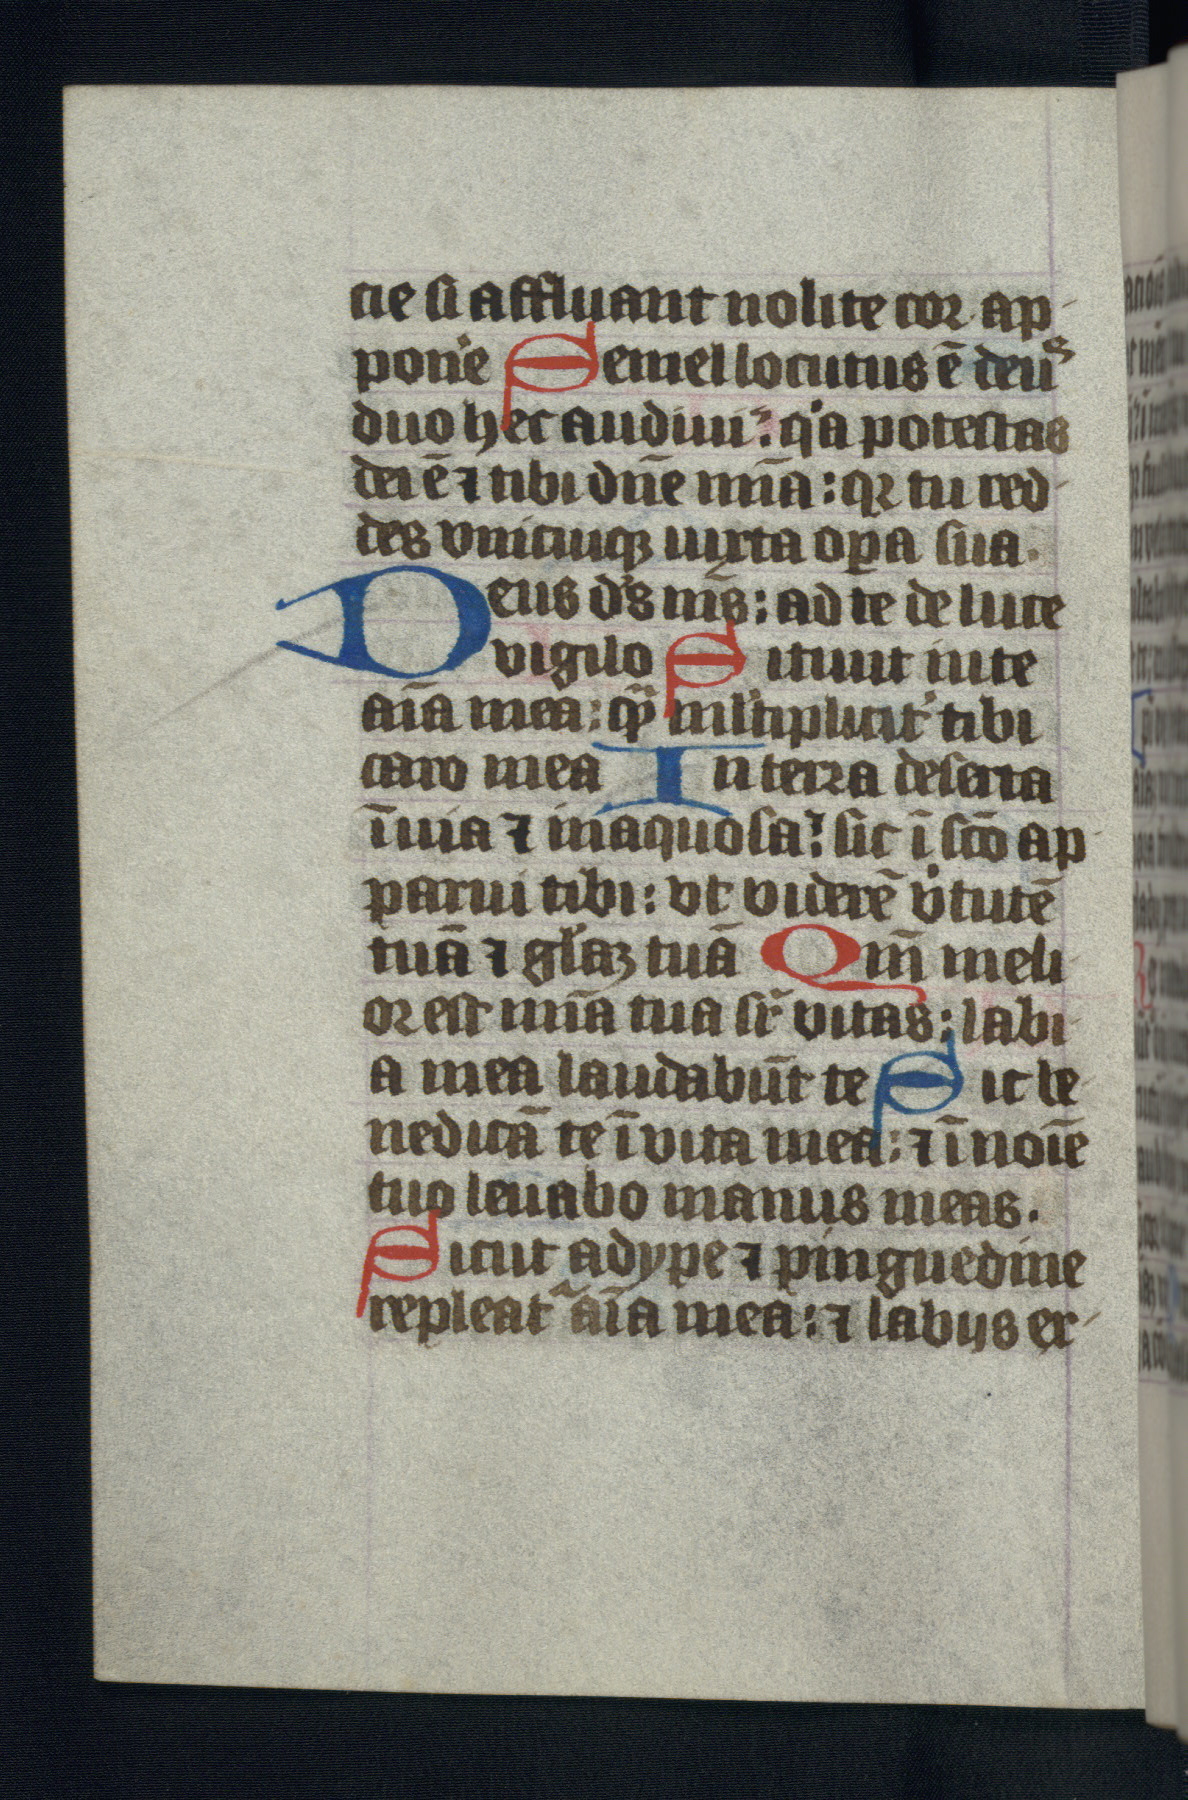 cie si affluant nolite cor ap-
pon̾e Semel locutus ē deus
duo hec audiui: qͥa potestas
dei ē ⁊ tibi dn̄e mīa: qꝛ tu red-
des vnicuiqꝫ iuxta oꝑa sua.
Deus ds̄ ms̄: ad te de luce
vigilo Sitiuit in te
aīa mea: qͣꝫ ml̾tiplicit̾ tibi
caro mea In terra deserta
īuia ⁊ inaquosa: sic ī sc̄o ap-
parui tibi: vt viderē v̾tutē
tuā ⁊ gl̄aꝫ tuā Qm̄ meli-
or est mīa tua sr̄ vitas: labi-
a mea laudabūt te Sic be-
nedicā te ī vita mea: ⁊ ī noīe
tuo leuabo manus meas.
Sicut adype ⁊ pinguedine
repleat᷑ aīa mea: ⁊ labijs ex-